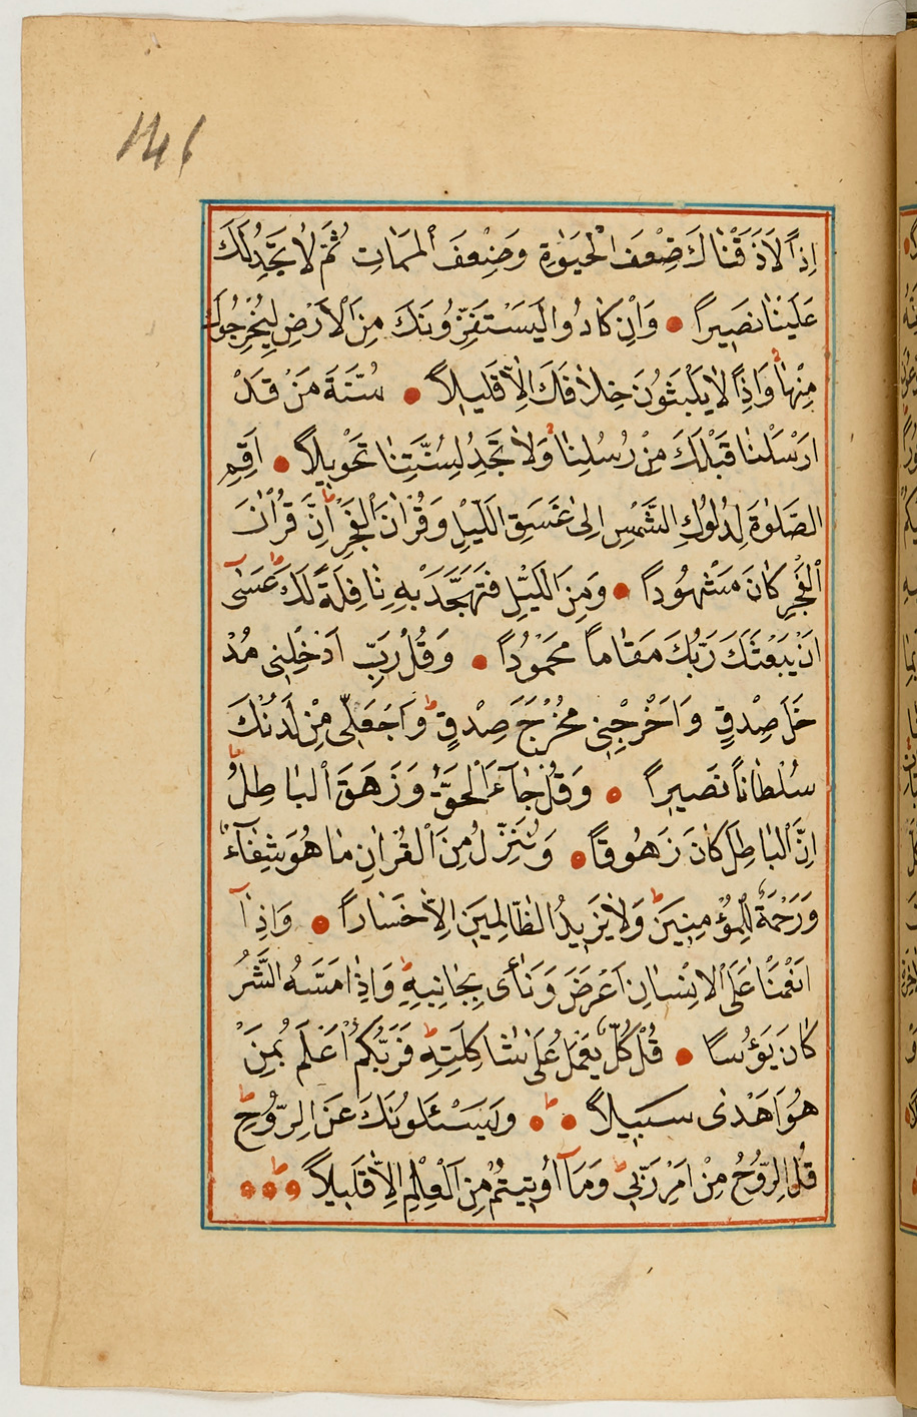 146
اِذاً لَاَذَقْنَاكَ ضِعْفَ الْحَيٰوةِ وَضِعْفَ الْمَمَاتِ ثُمَّ لَا تَجِدُ لَكَ
عَلَيْنَا نَصِيراً وَاِنْ كَادُوا لَيَسْتَفِزُّونَكَ مِنَ الْاَرْضِ لِيُخْرِجُوكَ
مِنْهَا وَاِذاً لَا يَلْبَثُونَ خِلَافَكَ اِلَّا قَلِيلاً سُنَّةَ مَنْ قَدْ
اَرْسَلْنَا قَبْلَكَ مِنْ رُسُلِنَا وَلَا تَجِدُ لِسُنَّتِنَا تَحْوِيلاً اَقِمِ
الصَّلٰوةَ لِدُلُوكِ الشَّمْسِ اِلٰى غَسَقِ الَّيْلِ وَقُرْاٰنَ الْفَجْرِ اِنَّ قُرْاٰنَ
الْفَجْرِ كَانَ مَشْهُوداً وَمِنَ الَّيْلِ فَتَهَجَّدْ بِهِ نَافِلَةً لَكَ عَسٰى
اَنْ يَبْعَثَكَ رَبُّكَ مَقَاماً مَحْمُوداً وَقُلْ رَبِّ اَدْخِلْنِي مُدْ
خَلَ صِدْقٍ وَاَخْرِجْنِي مُخْرَجَ صِدْقٍ وَاجْعَلْ لِي مِنْ لَدُنْكَ
سُلْطَاناً نَصِيراً وَقُلْ جَآءَ الْحَقُّ وَزَهَقَ الْبَاطِلُ
اِنَّ الْبَاطِلَ كَانَ زَهُوقاً وَنُنَزِّلُ مِنَ الْقُرْاٰنِ مَا هُوَ شِفَآءٌ
وَرَحْمَةٌ لِلْمُؤْمِنِينَ وَلَا يَزِيدُ الظَّالِمِينَ اِلَّا خَسَاراً وَاِذَآ
اَنْعَمْنَا عَلَى الْاِنْسَانِ اَعْرَضَ وَنَاٰى بِجَانِبِهِ وَاِذَا مَسَّهُ الشَّرُّ
كَانَ يَؤُسًا قُلْ كُلٌّ يَعْمَلُ عَلٰى شَاكِلَتِهِ فَرَبُّكُمْ اَعْلَمُ بِمَنْ
هُوَ اَهْدٰى سَبِيلاً وَيَسْـَٔلُونَكَ عَنِ الرُّوحِ
قُلِ الرُّوحُ مِنْ اَمْرِ رَبِّي وَمَآ اُوتِيتُمْ مِنَ الْعِلْمِ اِلَّا قَلِيلاً